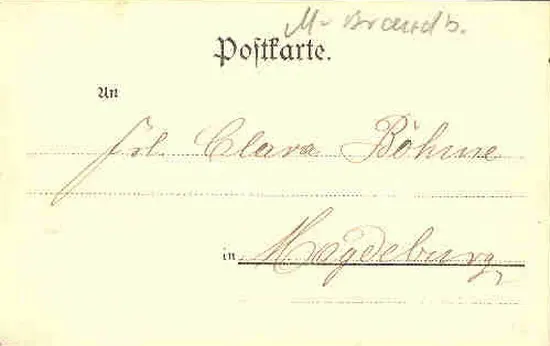 M- Brandb.
Postkarte.
An
Frl. Clara Böhme
in Magdeburg,